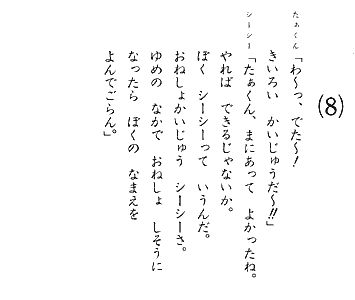 (8)
たぁくん「わ〜っ、でた〜!
きいろい かいじゅうだ〜!!」
シーシー「たぁくん、まにあって よかったね。
やれば できるじゃないか。
ぼく シーシーって いうんだ。
おねしょかいじゅう シーシーさ。
ゆめの なかで おねしょ しそうに
なったら ぼくの なまえを
よんでごらん」。